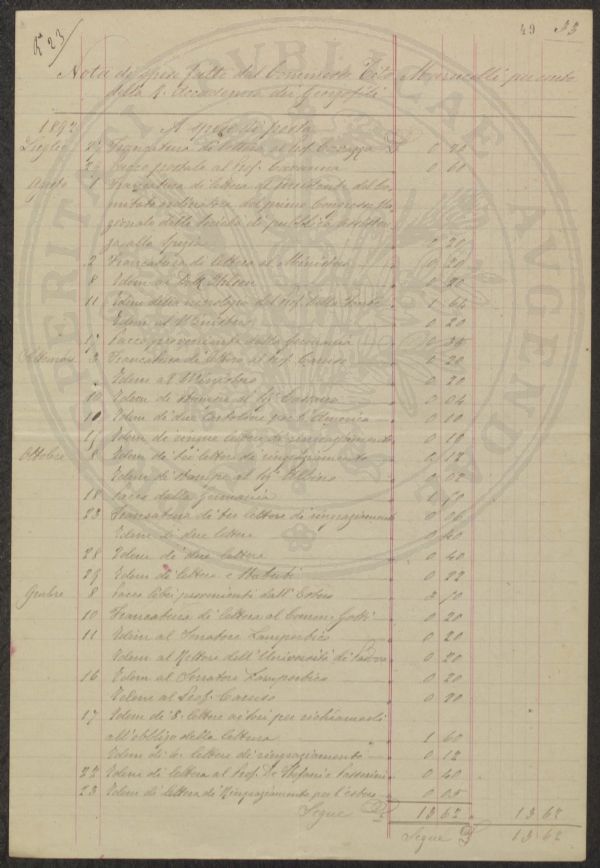 N 23
49 33
Nota di spese fatte dal Commesso Tito Marucelli per conto
della R. Accademia dei Georgofili
1892 A spese di posta
Luglio Francatura di lettera al Prof. £ 0 20
29 Pacco postale al Prof. Caruana 0 60
Agosto 1 Francatura di lettera al Presidente del Co-
mitato ordinatore del primo Congresso Na-
zionale delle Società di pubblica assisten-
za alla Spezia 0 20
2 Francatura di lettera al Ministero 0 20
8 Idem al 0 20
11 Idem della necrologia del Prof. Della 1 64
Idem al Ministero 0 20
Pacco proveniente dalla Germania 0
Settembre 3 Francatura di lettera al Prof. Caruso 0 20
Idem al Ministero 0 20
10 Idem di stampe al Sig. 0 04
10 Idem di due Cartoline per l'America 0 10
Idem di cinque lettere di ringraziamento 0 10
Ottobre 8 Idem di sei lettere di ringraziamento 0 12
Idem di stampe al Sig. 0 02
18 Pacco dalla Germania 1 50
23 Francatura di tre lettere di ringraziamento 0 06
Idem di due lettere 0 40
28 Idem di due lettere 0 40
29 Idem di lettera e 0 22
9mbre 8 Pacco libri provenienti dall'Estero 2 50
10 Francatura di lettera al Comm. Gotti 0 20
11 Idem al Senatore Lampertico 0 20
Idem al Rettore dell'Università di Padova 0 20
16 Idem al Senatore Lampertico 0 20
Idem al Prof. Caruso 0 20
17 Idem di 8 lettere ai soci per richiamarli
all'obbligo della lettura 1 60
Idem di 6 lettere di ringraziamento 0 12
22 Idem di lettera al Prof. De Stefani e Passerini 0 40
23 Idem di lettera di Ringraziamento per l'estero 0 05
Segue £ 13 62 13 62
Segue £ 13 62
PROSPERITATI PVBLICAE AVGENDAE